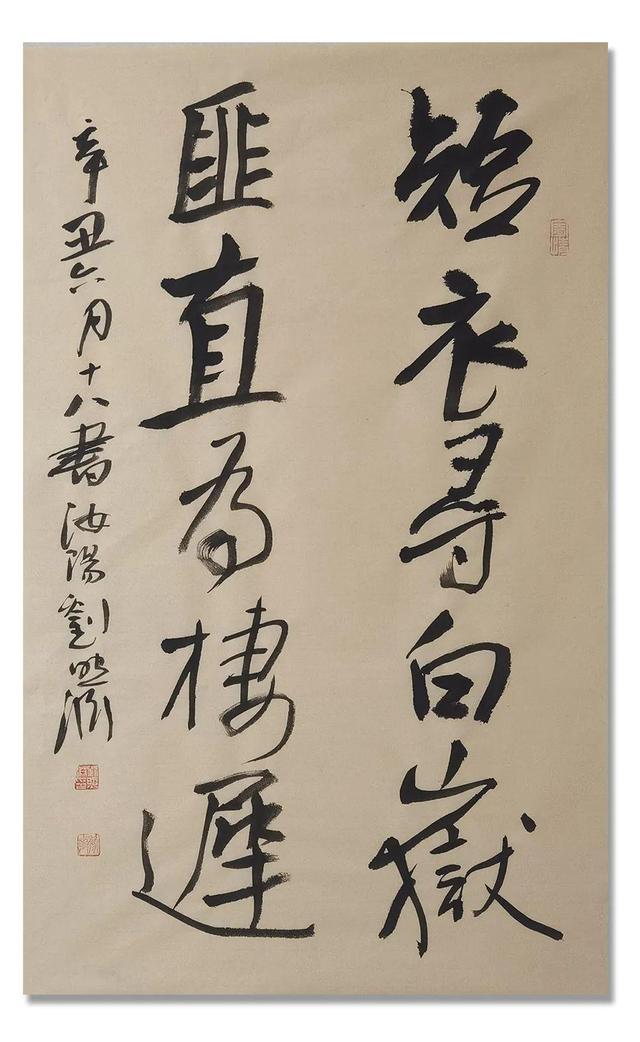 短衣尋白嶽
匪直為棲遲
辛丑六月十八書汝陽劉